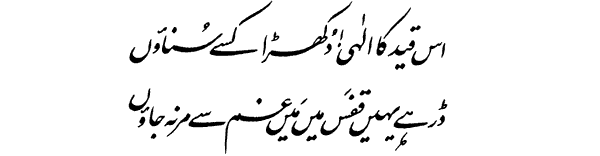 اس قید کا الٰہی! دُکھڑا کسے سُناؤں
ڈر ہے یہیں قفَس میں مَیں غم سے مر نہ جاؤں